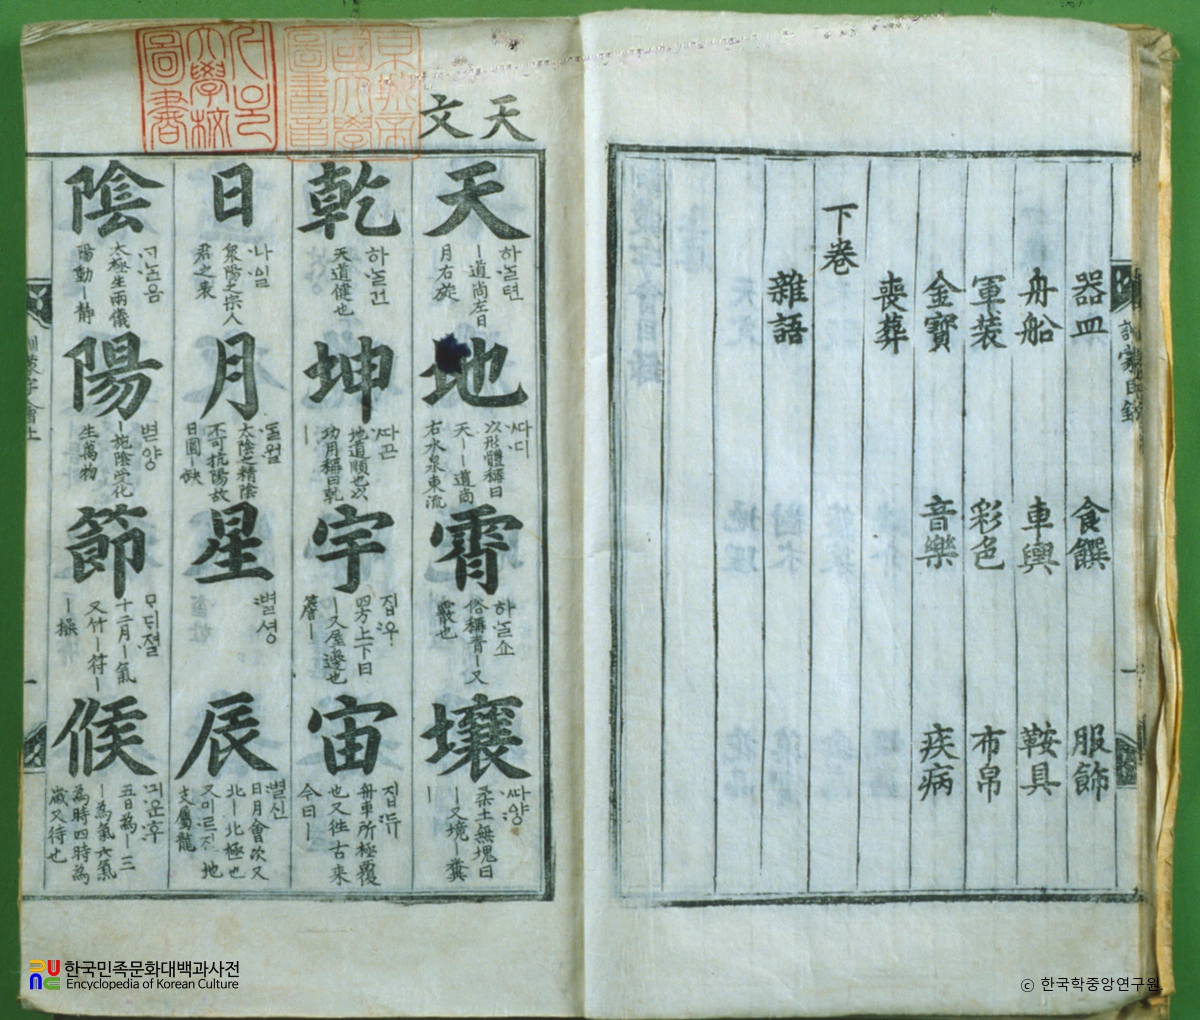 器皿 食饌 服飾
舟船 車輿 鞍具
軍装 彩色 布帛
金寶 音樂 疾病
喪葬
下卷
雜語
天文
天
하ᄂᆞᆯ텬
丨道尚左日
月右旋
地
ᄯᅡ디
以形體稱曰
天丨丨道尚
右水泉東流
霄
하ᄂᆞᆯ쇼
俗稱青丨又
霰也
壤
ᄯᅡ양
柔土無塊曰
丨又境丨糞
丨
乾
하ᄂᆞᆯ건
天道健也
坤
ᄯᅡ곤
地道順也以
功用稱曰乾
丨
宇
집우
四方上下曰
丨又屋邊也
簷丨
宙
집듀
舟車所極覆
也又徃古来
今曰丨
日
나일
衆陽之宗人
君之表
月
ᄃᆞᆯ월
太陰之精陰
不可抗陽故
日圓丨缺
星
별셩
辰
별신
日月會次又
北丨北極也
又미르진地
支屬龍
陰
ᄀᆞᄂᆞᆯ음
太極生兩儀
陽動丨静
陽
변양
丨施陰受化
生萬物
節
ᄆᆞ디졀
十二月丨氣
又竹丨符丨
丨操
候
긔운후
五日為丨三
丨為氣六氣
為時四時為
歲又待也
訓蒙字會上
一
한국민족문화대백과사전
Encyclopedia of Korean Culture
ⓒ 한국학중앙연구원